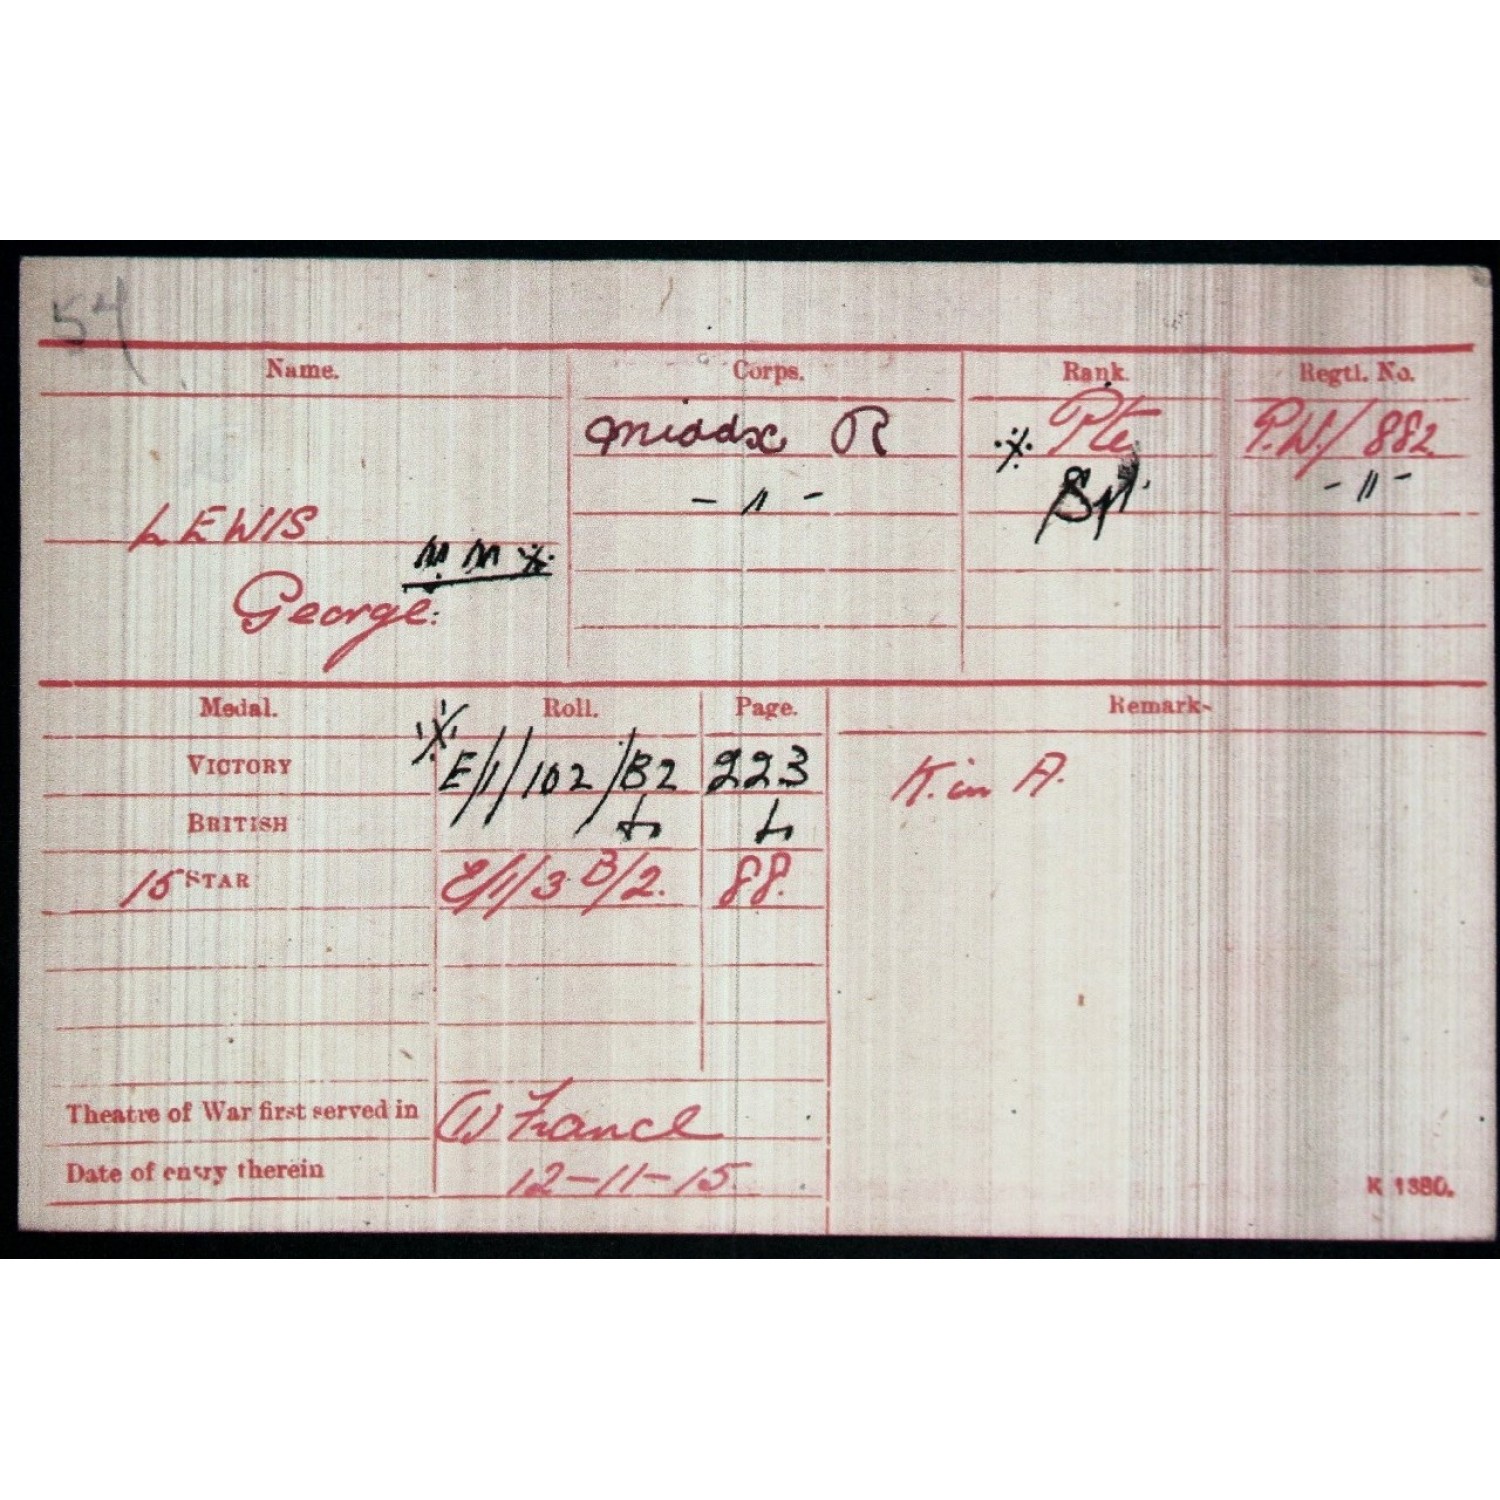 54
Name. Corps. Rank. Regtl. No.
Middx R ※ Pte P.W./882
- " - Sjt. - " -
LEWIS
M.M ※
George.
Medal. Roll. Page. Remark
VICTORY ※ E/1/102/B2 223 K. in A.
BRITISH
15 STAR E/1/3 B/2. 88.
Theatre of War first served in (1) France
Date of entry therein 12-11-15.
K 1380.